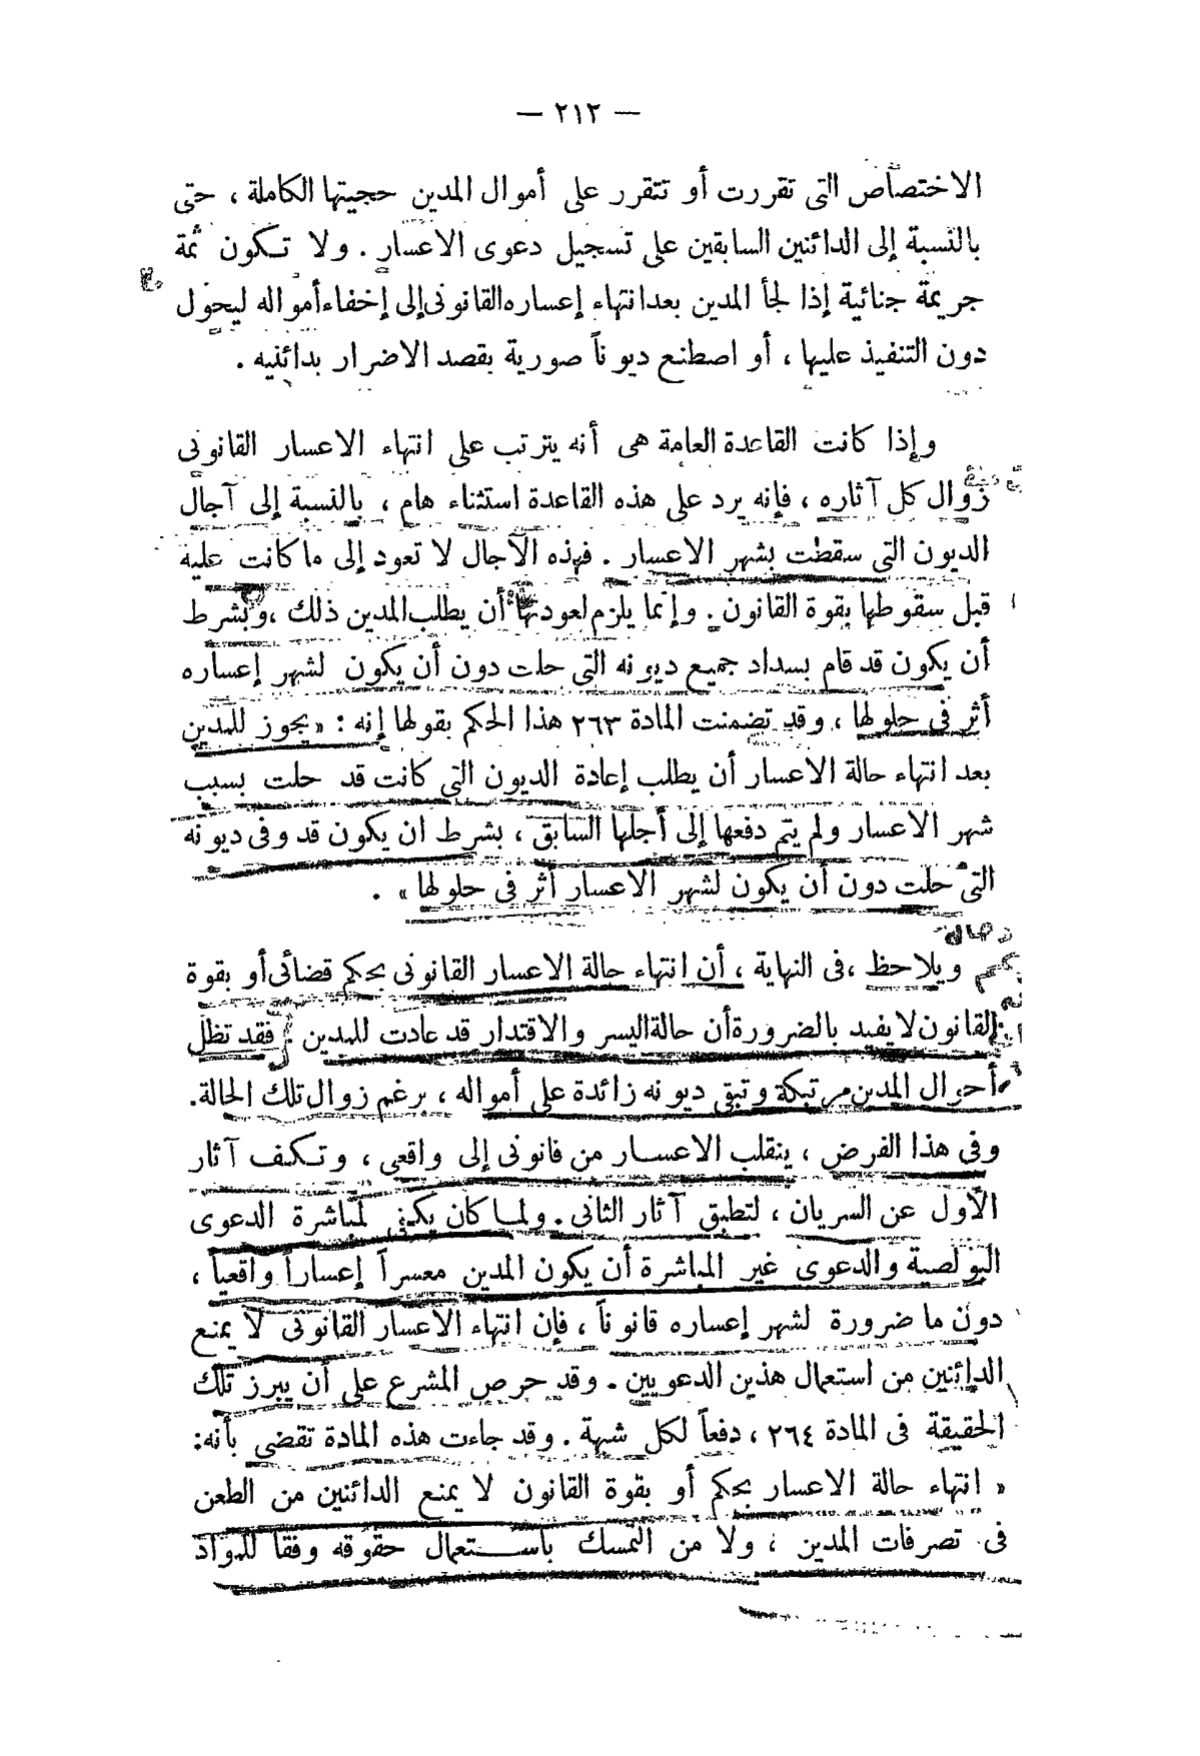 — ٢١٢ —
الاختصاص التى تقررت أو تتقرر على أموال المدين حجيتها الكاملة ، حتى
بالنسبة إلى الدائنين السابقين على تسجيل دعوى الاعسار . ولا تكون ثمة
جريمة جنائية إذا لجأ المدين بعد انتهاء إعساره القانونى إلى إخفاء أمواله ليحول
دون التنفيذ عليها ، أو اصطنع ديوناً صورية بقصد الاضرار بدائنيه .
وإذا كانت القاعدة العامة هى أنه يترتب على انتهاء الاعسار القانونى
زوال كل آثاره ، فإنه يرد على هذه القاعدة استثناء هام ، بالنسبة إلى آجال
الديون التى سقطت بشهر الاعسار . فهذه الآجال لا تعود إلى ما كانت عليه
قبل سقوطها بقوة القانون . وإنما يلزم لعودتها أن يطلب المدين ذلك ، وبشرط
أن يكون قد قام بسداد جميع ديونه التى حلت دون أن يكون لشهر إعساره
أثر فى حلولها ، وقد تضمنت المادة ٢٦٣ هذا الحكم بقولها إنه : « يجوز للمدين
بعد انتهاء حالة الاعسار أن يطلب إعادة الديون التى كانت قد حلت بسبب
شهر الاعسار ولم يتم دفعها إلى أجلها السابق ، بشرط ان يكون قد وفى ديونه
التى حلت دون أن يكون لشهر الاعسار أثر فى حلولها » .
ويلاحظ ، فى النهاية ، أن انتهاء حالة الاعسار القانونى بحكم قضائى أو بقوة
القانون لا يفيد بالضرورة أن حالة اليسر والاقتدار قد عادت للمدين . فقد تظل
أحوال المدين مرتبكة وتبقى ديونه زائدة على أمواله ، برغم زوال تلك الحالة .
وفى هذا الفرض ، ينقلب الاعسار من قانونى إلى واقعى ، وتكف آثار
الأول عن السريان ، لتطبق آثار الثانى . ولما كان يكفى لمباشرة الدعوى
البولصية والدعوى غير المباشرة أن يكون المدين معسراً إعساراً واقعياً ،
دون ما ضرورة لشهر إعساره قانوناً ، فإن انتهاء الاعسار القانونى لا يمنع
الدائنين من استعمال هذين الدعويين . وقد حرص المشرع على أن يبرز تلك
الحقيقة فى المادة ٢٦٤ ، دفعاً لكل شبهة . وقد جاءت هذه المادة تقضى بأنه :
« انتهاء حالة الاعسار بحكم أو بقوة القانون لا يمنع الدائنين من الطعن
فى تصرفات المدين ، ولا من التمسك باستعمال حقوقه وفقا للمواد